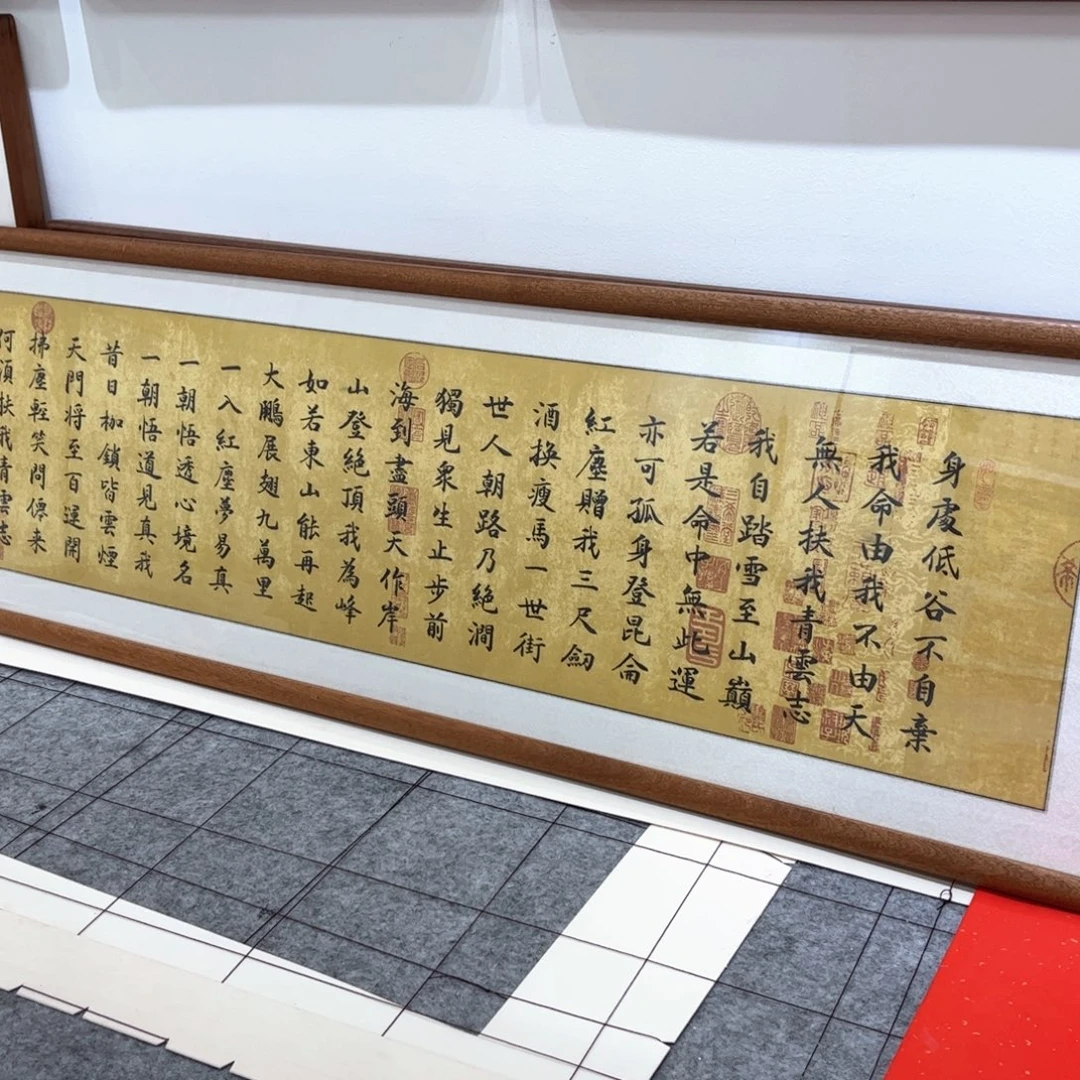 身處低谷不自棄
我命由我不由天
無人扶我青雲志
我自踏雪至山巔
若是命中無此運
亦可孤身登昆侖
紅塵贈我三尺劒
酒換瘦馬一世街
世人朝路乃絕澗
獨見衆生止步前
海到盡頭天作岸
山登絕頂我為峰
如若東山能再起
大鵬展翅九萬里
一入紅塵夢易真
一朝悟透心境名
一朝悟道見真我
昔日枷鎖皆雲煙
天門將至百運開
拂塵輕笑問僊来
何須扶我青雲志